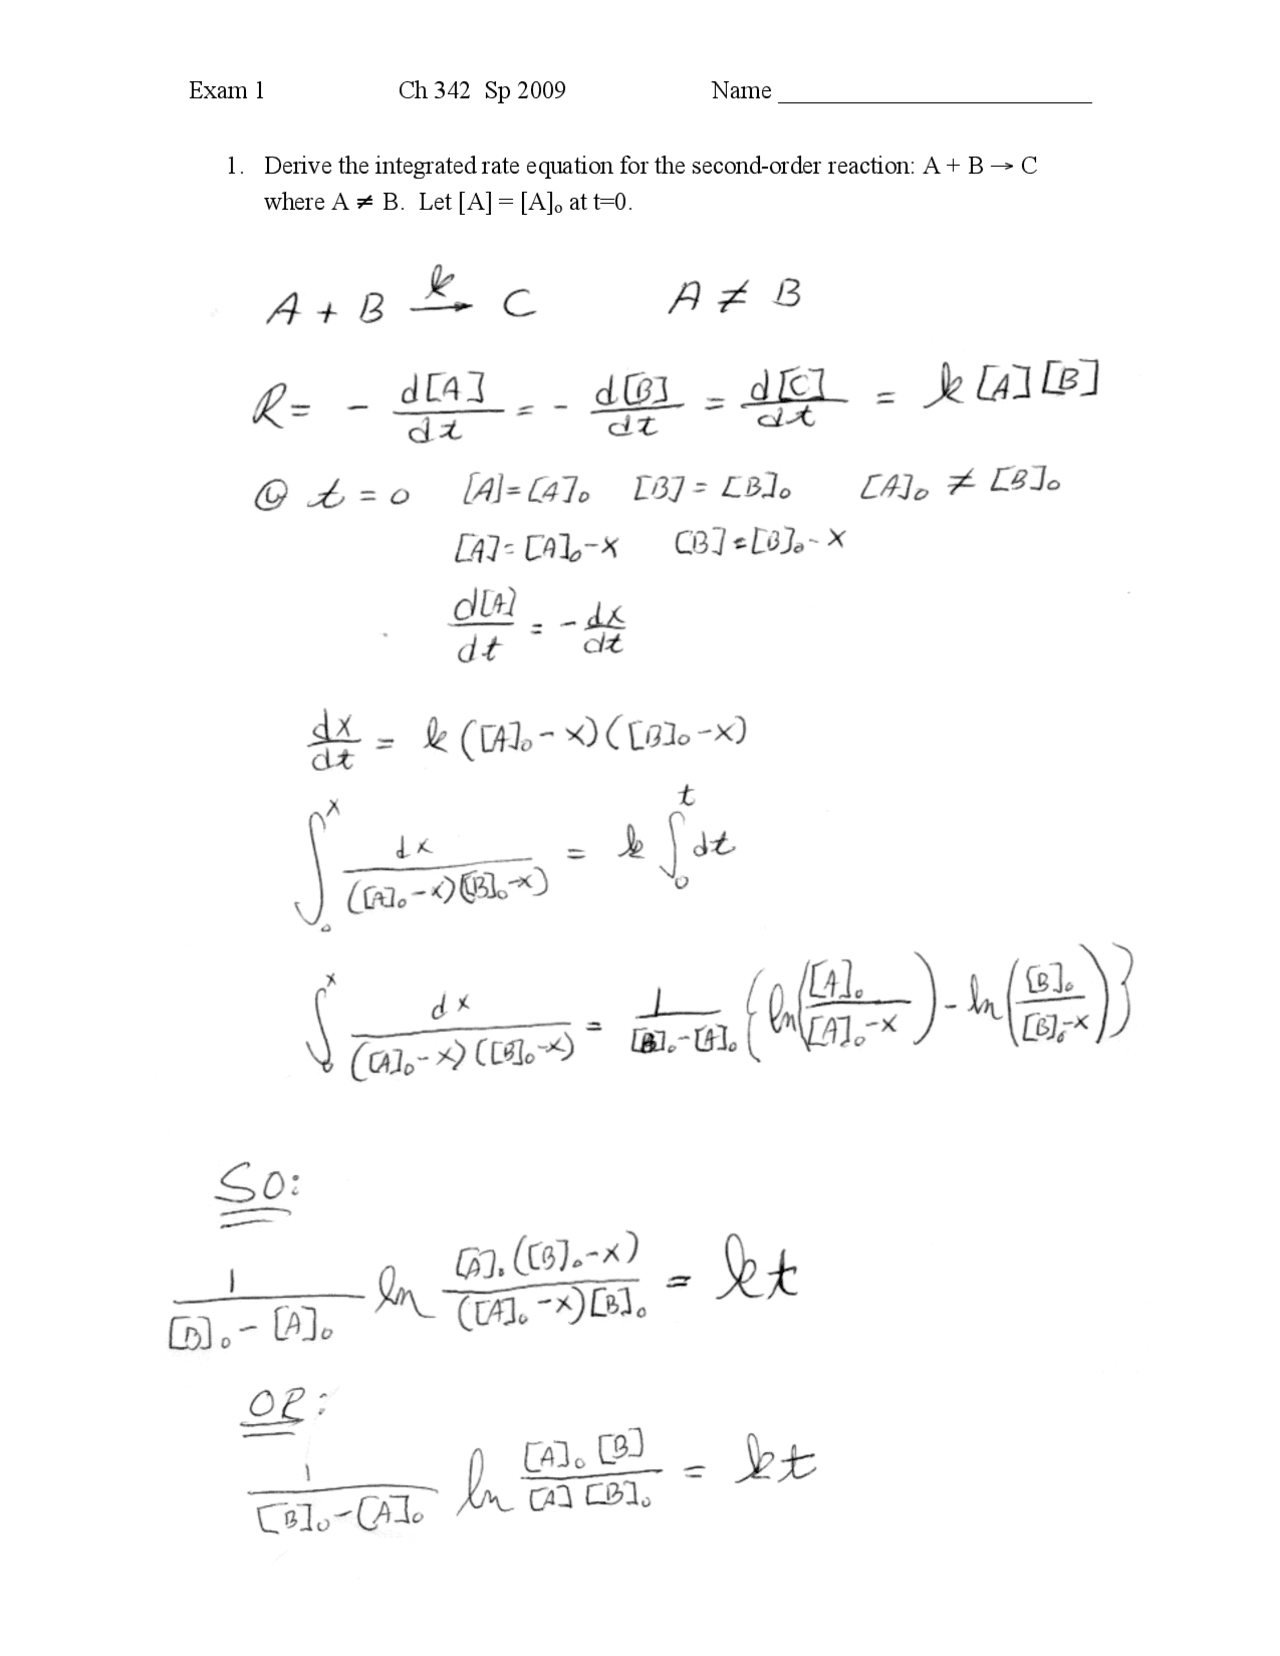 Exam 1 Ch 342 Sp 2009 Name ________________________
1. Derive the integrated rate equation for the second-order reaction: A + B → C
where A ≠ B. Let [A] = [A]₀ at t=0.
A + B —k→ C A ≠ B
R = - d[A]/dt = - d[B]/dt = d[C]/dt = k[A][B]
@ t = 0 [A]=[A]₀ [B]=[B]₀ [A]₀ ≠ [B]₀
[A]=[A]₀-x [B]=[B]₀-x
d[A]/dt = - dx/dt
dx/dt = k([A]₀-x)([B]₀-x)
∫₀ˣ dx/(([A]₀-x)([B]₀-x)) = k ∫₀ᵗ dt
∫₀ˣ dx/(([A]₀-x)([B]₀-x)) = 1/([B]₀-[A]₀) {ln([A]₀/([A]₀-x)) - ln([B]₀/([B]₀-x))}
SO:
1/([B]₀-[A]₀) ln [A]₀([B]₀-x)/(([A]₀-x)[B]₀) = kt
OR:
1/([B]₀-[A]₀) ln [A]₀[B]/([A][B]₀) = kt